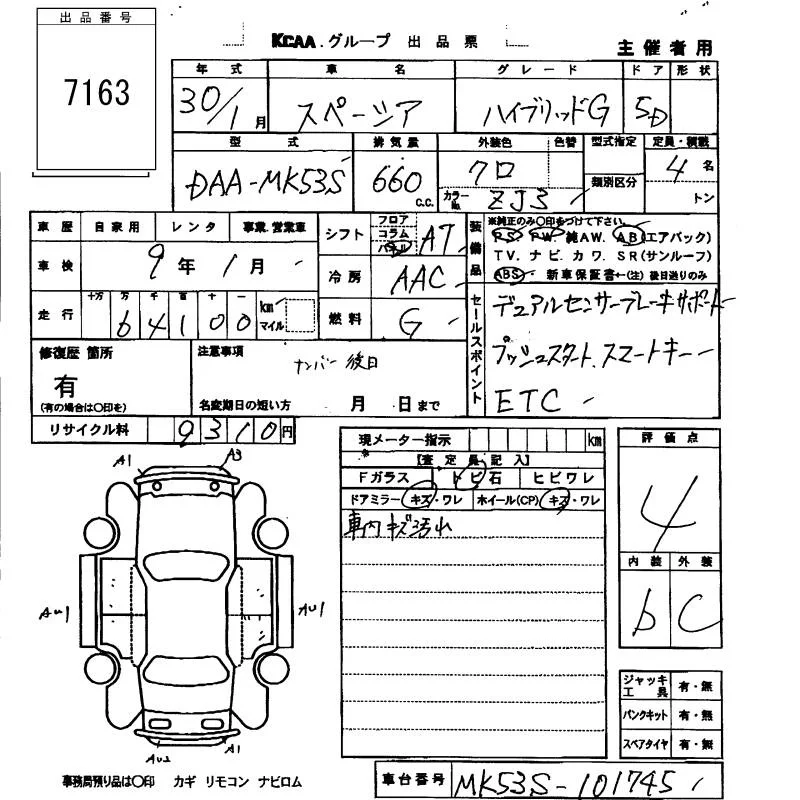 出品番号
7163
KCAA.グループ 出品票
主催者用
年式 車名 グレード ドア 形状
30/1月 スペーシア ハイブリッドG 5D
型式 排気量 外装色 色替 型式指定 定員・積載
DAA-MK53S 660 c.c. クロ 類別区分 4名
カラーNo. ZJ3 トン
車歴 自家用 レンタ 事業.営業車
シフト フロア コラム パネル AT
装備品 ※純正のみ○印をつけて下さい。
PS. PW. 純AW. AB(エアバック)
TV. ナビ. カワ. SR(サンルーフ)
ABS. 新車保証書←(注)後日送りのみ
車検 9年1月
冷房 AAC
走行 十万 万 千 百 十 一 km マイル
64100
燃料 G
セールスポイント デュアルセンサーブレーキサポート
プッシュスタート.スマートキー
ETC
修復歴 箇所
有
(有の場合は○印を)
注意事項 ナンバー後日
名変期日の短い方 月 日まで
リサイクル料 9310円
現メーター指示 km
【査定員記入】
Fガラス トビ石 ヒビワレ
ドアミラー キズ・ワレ ホイール(CP) キズ・ワレ
車内キズ汚れ
評価点
4
内装 外装
b C
A1 A3
AU1 AU1
AU2 A1
ジャッキ工具 有・無
パンクキット 有・無
スペアタイヤ 有・無
事務局預り品は○印 カギ リモコン ナビロム
車台番号 MK53S-101745